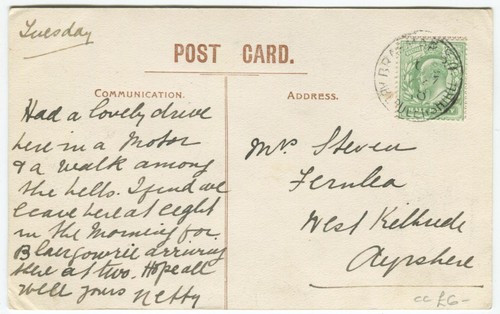 Tuesday
POST CARD.
COMMUNICATION.
ADDRESS.
Had a lovely drive
here in a Motor
& a walk among
the hills. I find we
leave here at eight
in the Morning for
Blairgowrie arriving
there at two. Hope all
well yours Netty
Mrs Steven
Fernlea
West Kilbride
Ayrshire
BRAEMAR
cc £6-